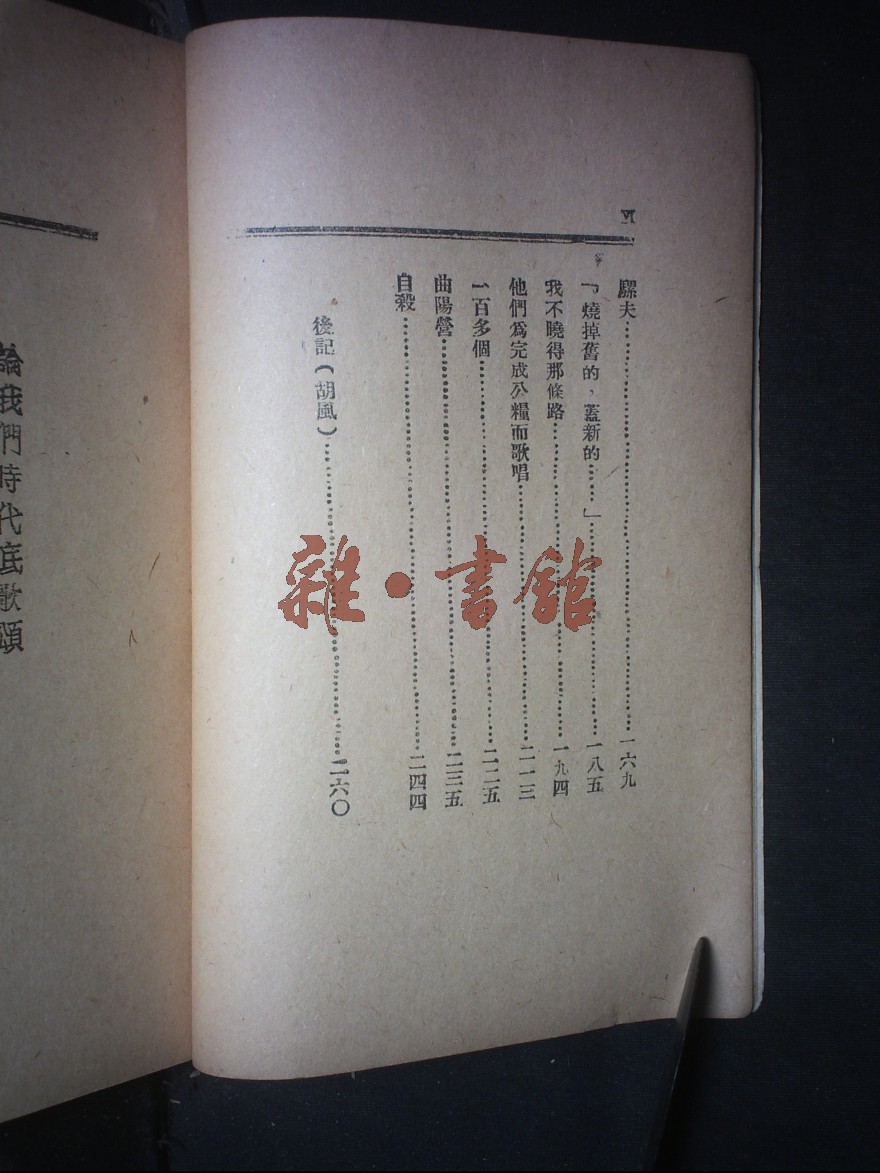 VI
騾夫……………………一六九
「燒掉舊的，蓋新的……」……………………一八五
我不曉得那條路……………………一九四
他們爲完成公糧而歌唱……………………二一三
一百多個……………………二二五
曲陽營……………………二三五
自殺……………………二四四
後記（胡風）……………………二六〇
論我們時代底歌頌
雜·書館